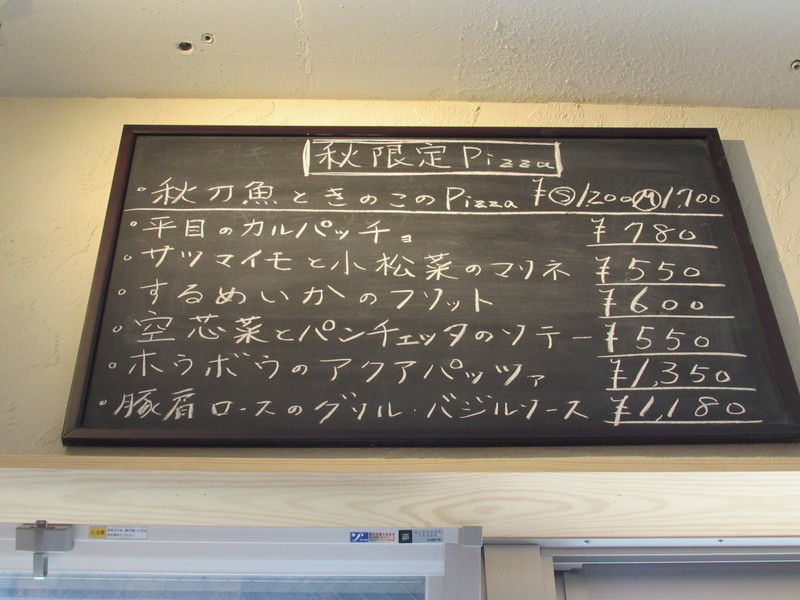 秋限定Pizza
・秋刀魚ときのこのPizza ¥Ⓢ1,200Ⓜ1,700
・平目のカルパッチョ ¥780
・サツマイモと小松菜のマリネ ¥550
・するめいかのフリット ¥600
・空芯菜とパンチェッタのソテー ¥550
・ホウボウのアクアパッツァ ¥1,350
・豚肩ロースのグリル・バジルソース ¥1,180